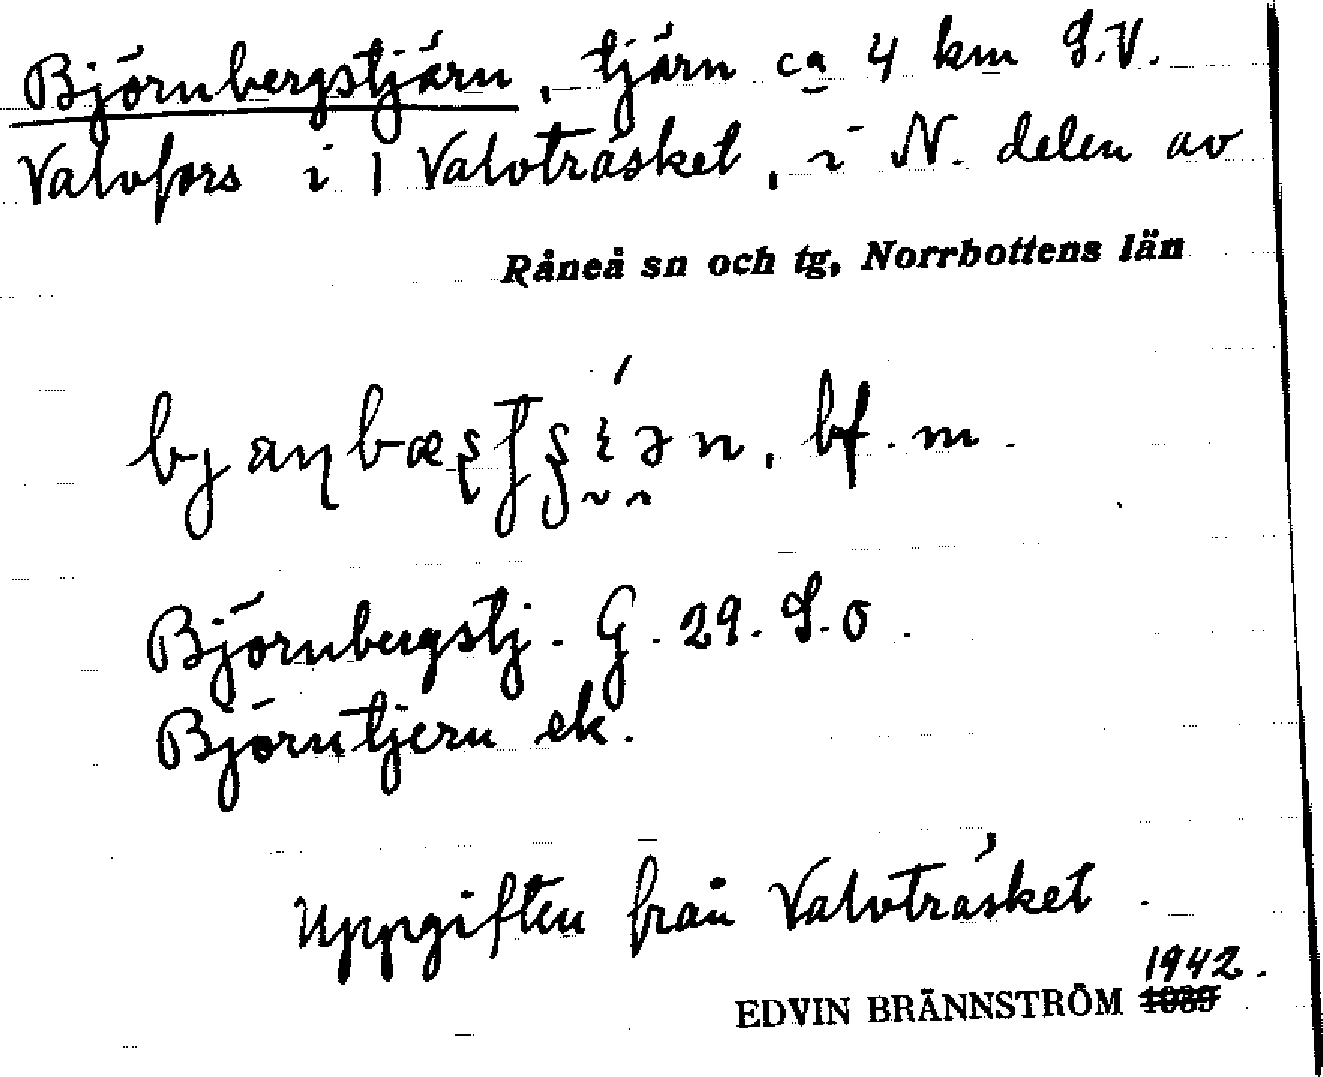 Björnbergstjärn, tjärn ca 4 km S.V.
Valvfors i 1 Valvträsket, i N. delen av
Råneå sn och tg, Norrbottens län
bf. m.
Björnbergstj. G. 29. S.O.
Björntjern ek.
Uppgiften från Valvträsket
1942.
EDVIN BRÄNNSTRÖM 1939